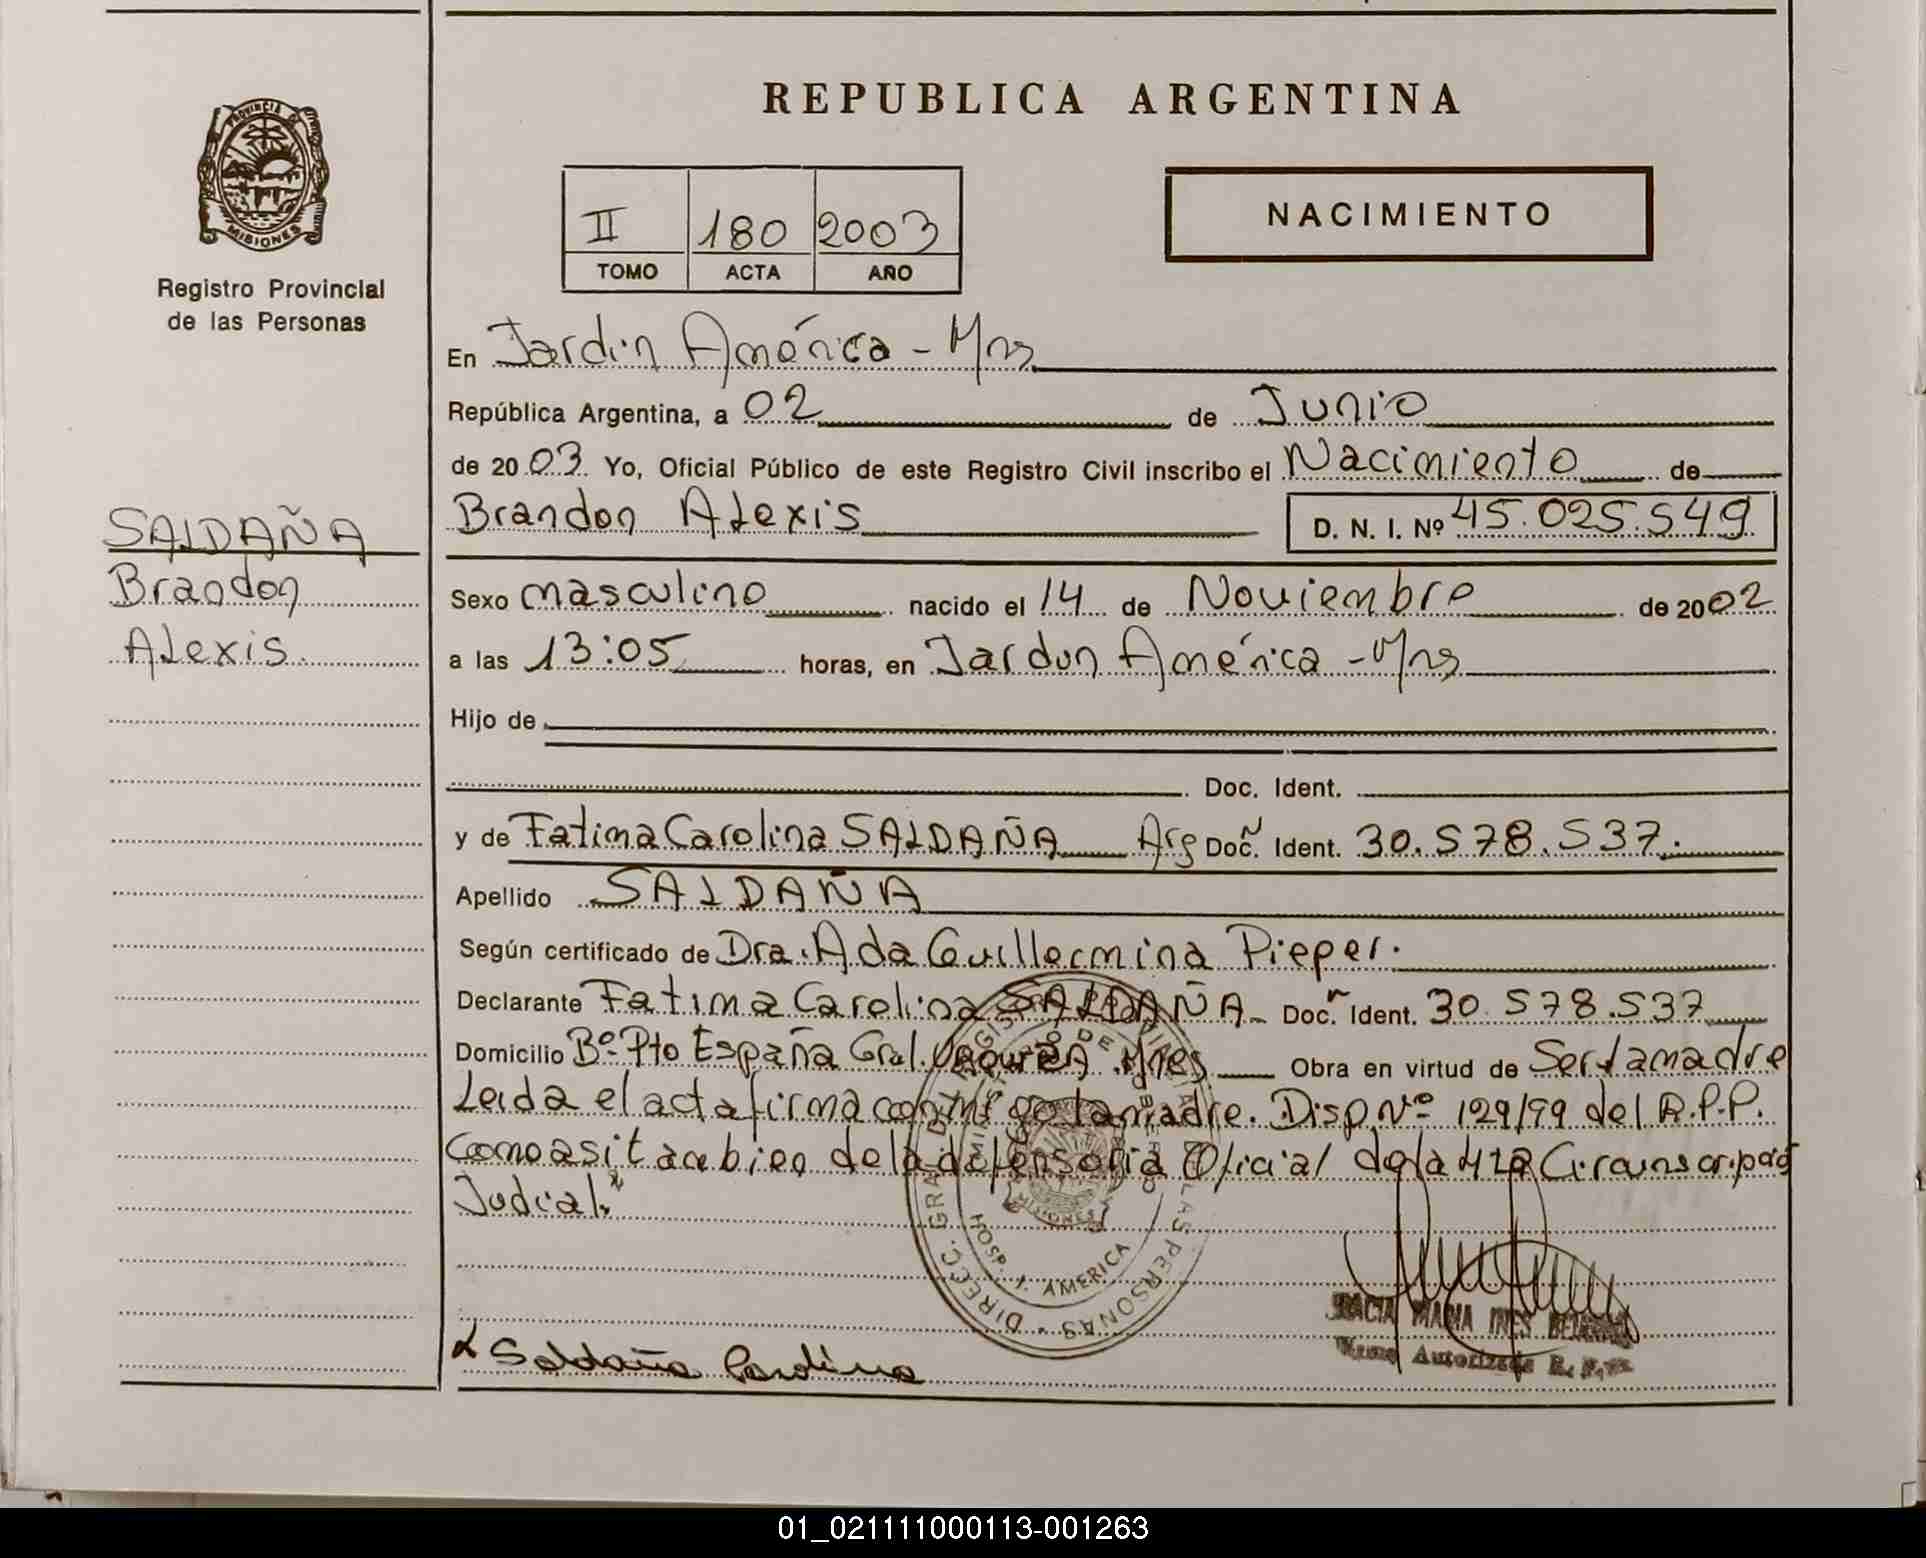 REPUBLICA ARGENTINA
PROVINCIA DE
MISIONES
Registro Provincial
de las Personas
II 180 2003
TOMO ACTA AÑO
NACIMIENTO
En Jardin América - Mns
República Argentina, a 02 de Junio
de 2003 Yo, Oficial Público de este Registro Civil inscribo el Nacimiento de
Brandon Alexis D. N. I. Nº 45.025.549
SALDAÑA
Brandon
Alexis
Sexo masculino nacido el 14 de Noviembre de 2002
a las 13:05 horas, en Jardin América - Mns
Hijo de
Doc. Ident.
y de Fatima Carolina SALDAÑA Arg Doc. Ident. 30.578.537.
Apellido SALDAÑA
Según certificado de Dra. Ada Guillermina Pieper.
Declarante Fatima Carolina SALDAÑA Doc. Ident. 30.578.537
Domicilio Bº Pto España Gral. Mnes Obra en virtud de Ser la madre
Leida el acta firma conmigo la madre. Disp. Nº 129/99 del R.P.P.
Como asi tambien de la defensoria Oficial de la 4ta Circunscripció
Judicial.
DIRECC. GRAL. DEL REGISTRO PROVINCIAL DE LAS PERSONAS
MINISTERIO DE GOBIERNO
MISIONES
HOSP. J. AMERICA
MARIA INES
Autorizada
Saldaña Carolina
01_021111000113-001263